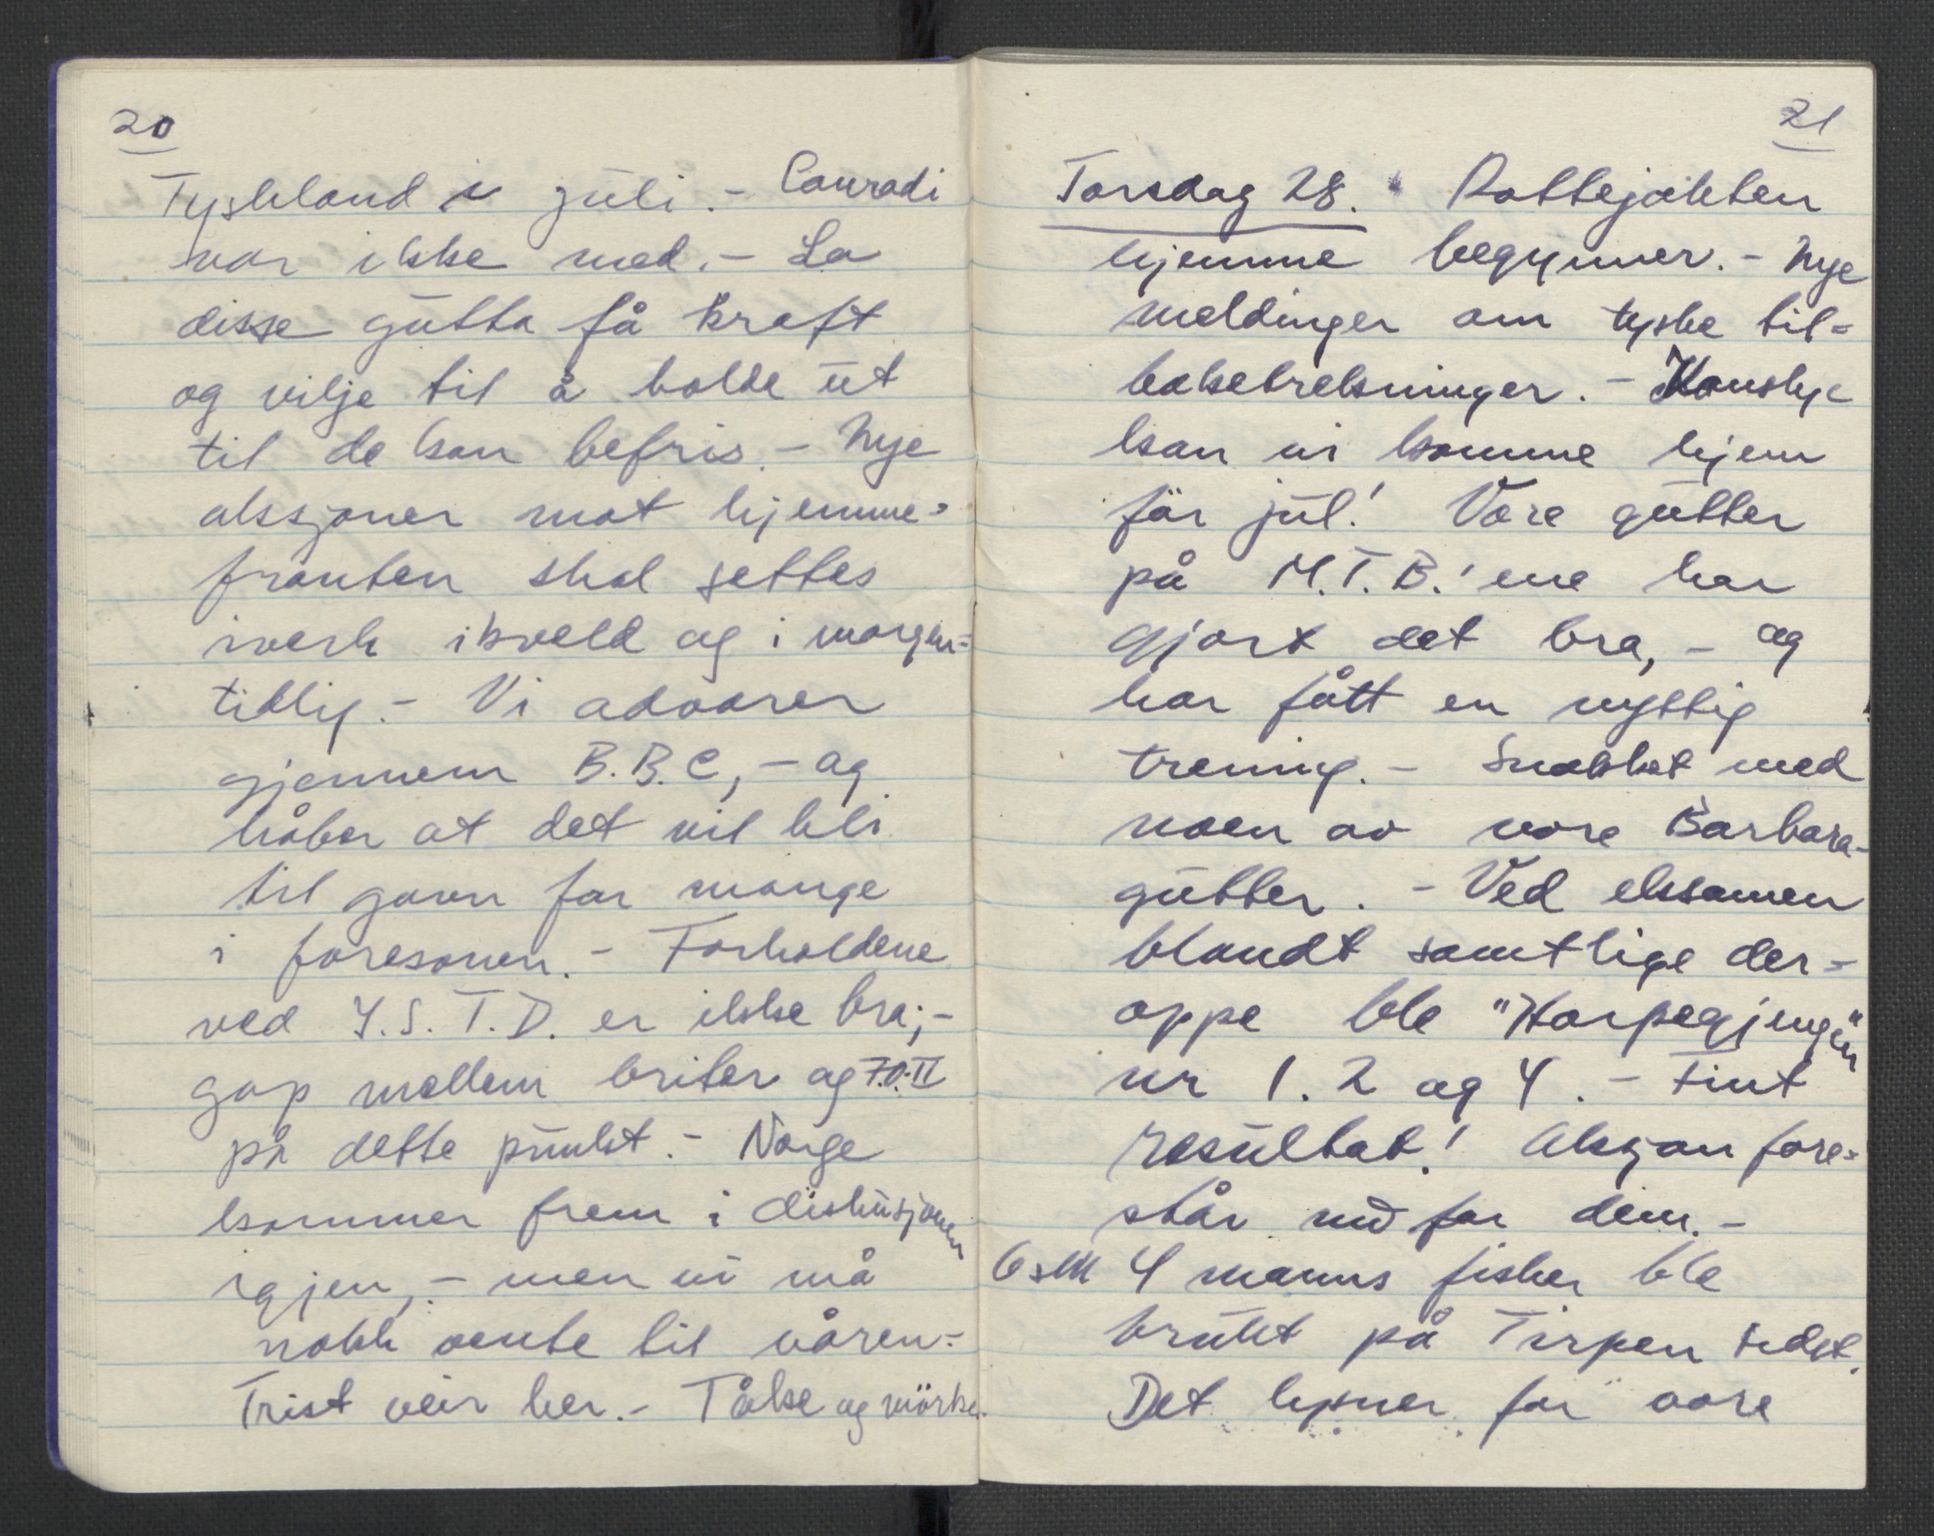 20
Tyskland i juli. - Conradi
var ikke med. - La
disse gutta få kraft
og vilje til å holde ut
til de kan befris. - Nye
aksjoner mot hjemme=
fronten skal settes
iverk ikveld og i morgen=
tidlig. - Vi advarer
gjennem B.B.C, - og
håber at det vil bli
til gavn for mange
i faresonen. - Forholdene
ved Y.S.T.D. er ikke bra; -
gap mellem briter og F.O. II
på dette punkt. - Norge
kommer frem i diskusjonen
igjen, - men vi må
nokk vente til våren. -
Trist veir her. - Tåke og mörke.
21
Torsdag 28. Rottejakten
hjemme begynner. - Nye
meldinger om tyske til=
baketrekninger. - Kanskje
kan vi komme hjem
før jul! Våre gutter
på M.T.B.'ene har
gjort det bra, - og
har fått en nyttig
trening. - Snakket med
noen av vore Barbara-
gutter. - Ved eksamen
blandt samtlige der=
oppe ble "Harpegjengen"
nr 1. 2 og 4. - Fint
resultat! Aksjon fore=
står nu for dem. -
4 manns fisker ble
brukt på Tirpen sidst.
Det lysner for vore